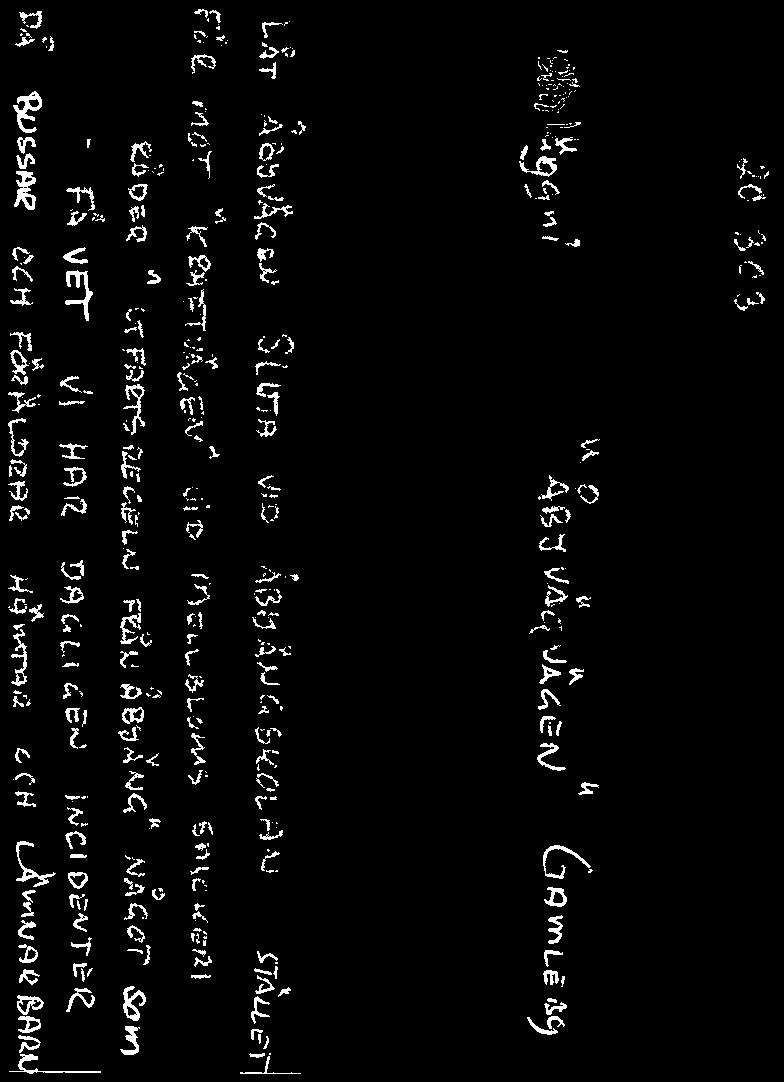 20 303
"ÅBYVÄGVÄGEN" GAMLEBY
LÅT ÅBYVÄGEN SLUTA VID ÅBYÄNGSKOLAN STÄLLET
FÖR MOT "KRAFTVÄGEN" VID MELLBLOMS BAGERI
RÅDER "UTFARTSREGELN FRÅN ÅBYÄNG" NÅGOT SOM
- FÅ VET VI HAR DAGLIGEN INCIDENTER
DÅ BUSSAR OCH FÖRÄLDRAR HÄMTAR OCH LÄMNAR BARN